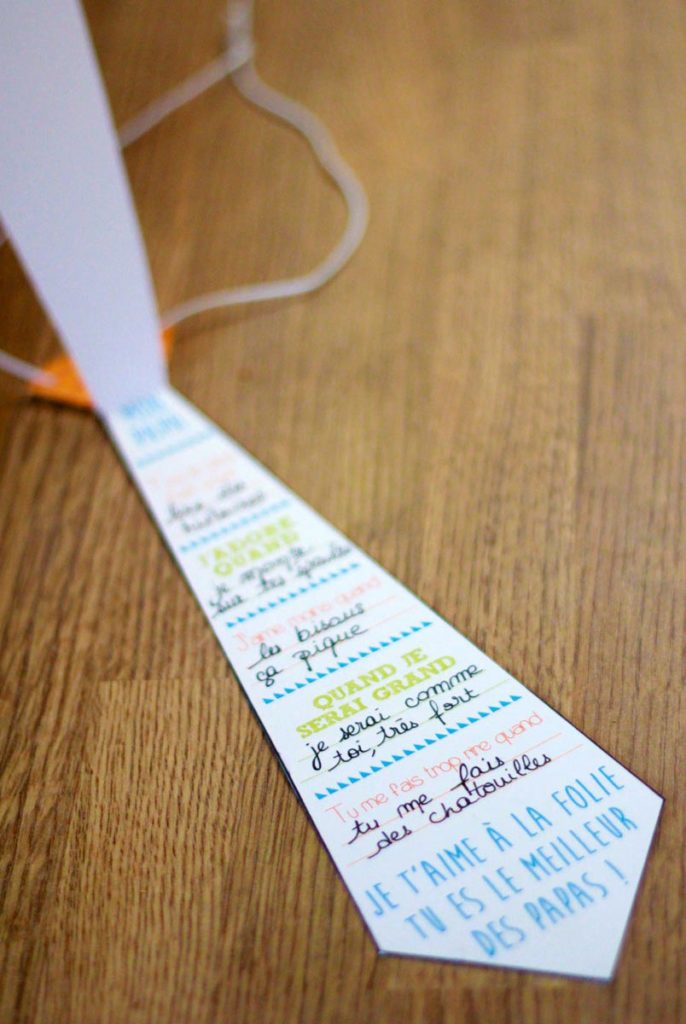 J'ADORE
QUAND
je monte
sur tes épaules
J'aime moins quand
les bisous
ça pique
QUAND JE
SERAI GRAND
je serai comme
toi, très fort
Tu me fais trop rire quand
tu me fais
des chatouilles
JE T'AIME À LA FOLIE
TU ES LE MEILLEUR
DES PAPAS !